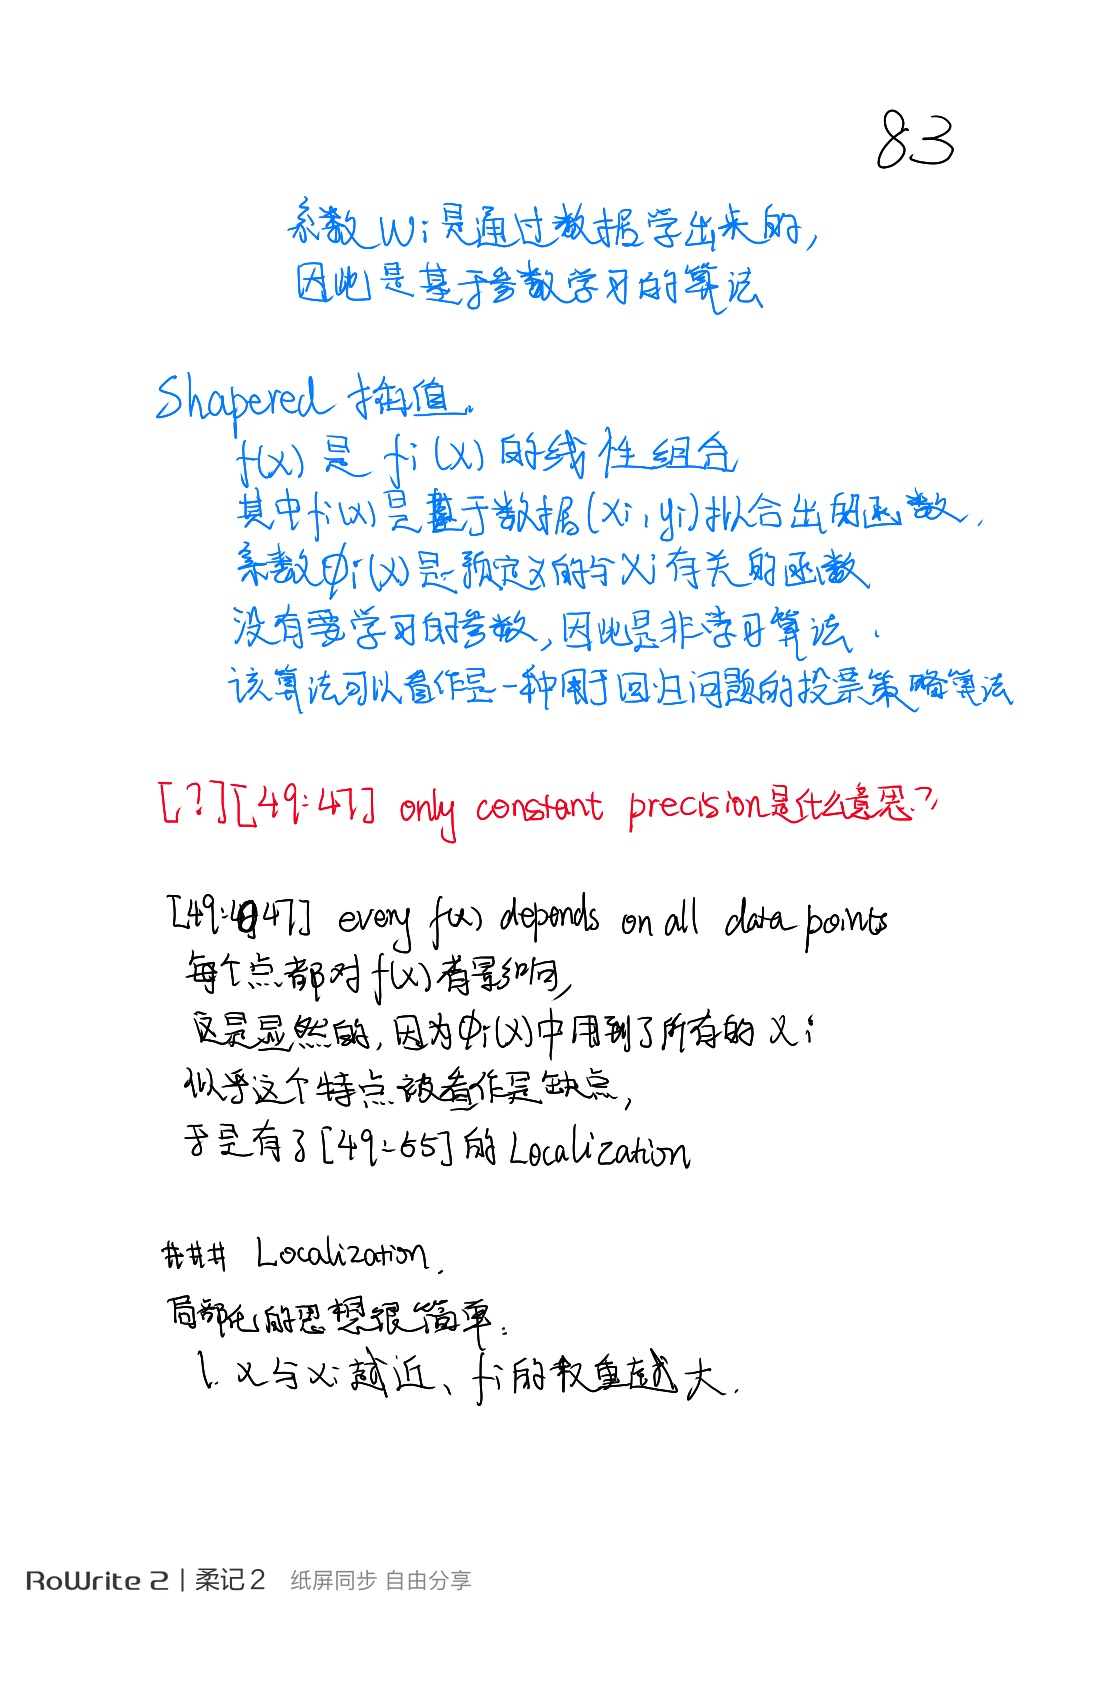 83
系数 Wi 是通过数据学出来的,
因此是基于参数学习的算法
Shapered 插值.
f(x) 是 fi(x) 的线性组合
其中 fi(x) 是基于数据(xi,yi)拟合出的函数.
系数 φi(x) 是预定义的与 xi 有关的函数
没有要学习的参数,因此是非学习算法.
该算法可以看作是一种用于回归问题的投票策略算法
[?][49:47] only constant precision是什么意思?
[49:47] every f(x) depends on all data points
每个点都对 f(x) 有影响,
这是显然的,因为 φi(x) 中用到了所有的 xi
似乎这个特点被看作是缺点,
于是有了[49:55]的 Localization
### Localization.
局部化的思想很简单:
1. x 与 xi 越近、fi 的权重越大.
RoWrite 2 | 柔记 2 纸屏同步 自由分享